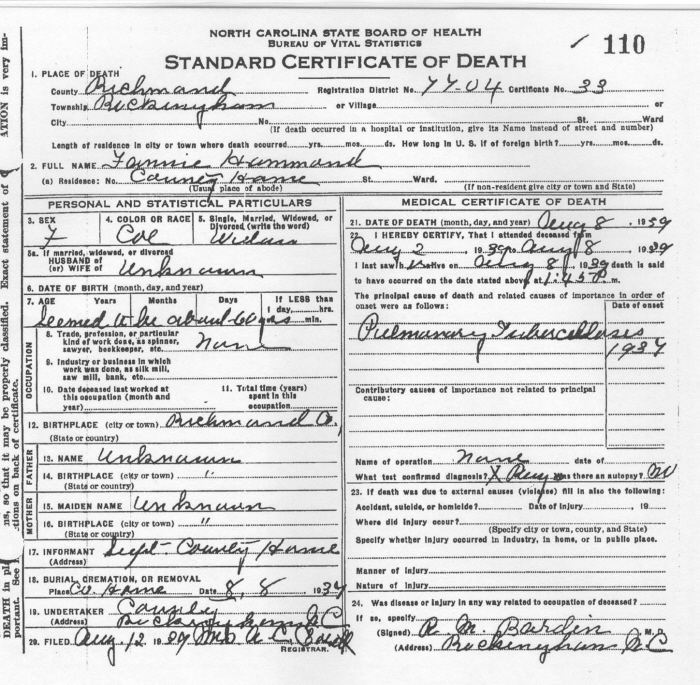 ATION is very im-
ns, so that it may be properly classified. Exact statement of
ctions on back of certificate.
DEATH in pl
portant. See I
NORTH CAROLINA STATE BOARD OF HEALTH
BUREAU OF VITAL STATISTICS
STANDARD CERTIFICATE OF DEATH
✓ 110
1. PLACE OF DEATH
County Richmond Registration District No. 77-04 Certificate No. 33
Township Rockingham or Village or
City No. St. Ward
(If death occurred in a hospital or institution, give its Name instead of street and number)
Length of residence in city or town where death occurred yrs. mos. ds. How long in U. S. if of foreign birth? yrs. mos. ds.
2. FULL NAME Fannie Hammond
(a) Residence: No. County Home St. Ward.
(Usual place of abode) (If non-resident give city or town and State)
PERSONAL AND STATISTICAL PARTICULARS
3. SEX 4. COLOR OR RACE 5. Single, Married, Widowed, or
Divorced (write the word)
F Col Widow
5a. If married, widowed, or divorced
HUSBAND of
(or) WIFE of Unknown
6. DATE OF BIRTH (month, day, and year)
7. AGE Years Months Days If LESS than
1 day, hrs.
Seemed to be about 60 yrs min.
OCCUPATION
8. Trade, profession, or particular
kind of work done, as spinner,
sawyer, bookkeeper, etc. None
9. Industry or business in which
work was done, as silk mill,
saw mill, bank, etc.
10. Date deceased last worked at
this occupation (month and
year)
11. Total time (years)
spent in this
occupation
12. BIRTHPLACE (city or town) Richmond Co,
(State or country)
FATHER
13. NAME Unknown
14. BIRTHPLACE (city or town) "
(State or country)
MOTHER
15. MAIDEN NAME Unknown
16. BIRTHPLACE (city or town) "
(State or country)
17. INFORMANT Supt- County Home
(Address)
18. BURIAL, CREMATION, OR REMOVAL
Place Co. Home Date 8, 8 1939
19. UNDERTAKER County
(Address) Rockingham N C
20. FILED Aug. 12 1939 Mrs A. C.
REGISTRAR.
MEDICAL CERTIFICATE OF DEATH
21. DATE OF DEATH (month, day, and year) Aug 8, 1939
22. I HEREBY CERTIFY, That I attended deceased from
Aug 2 1939 to Aug 8 1939
I last saw h alive on Aug 8, 1939 death is said
to have occurred on the date stated above, at 1:45 P m.
The principal cause of death and related causes of importance in order of
onset were as follows: Date of onset
Pulmonary Tuberculosis
1937
Contributory causes of importance not related to principal
cause:
Name of operation None date of
What test confirmed diagnosis? X Rays Was there an autopsy? No
23. If death was due to external causes (violence) fill in also the following:
Accident, suicide, or homicide? Date of injury , 19
Where did injury occur?
(Specify city or town, county, and State)
Specify whether injury occurred in industry, in home, or in public place.
Manner of injury
Nature of injury
24. Was disease or injury in any way related to occupation of deceased?
If so, specify
(Signed) R. M. Bardin M. D.
(Address) Rockingham N. C